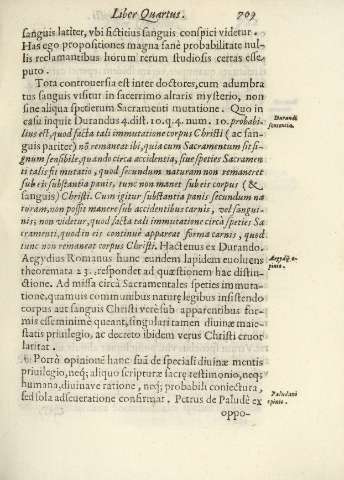 Liber Quartus. 709
sanguis latiter, vbi fictitius sanguis conspici videtur.
Has ego propositiones magna sanè probabilitate nul-
lis reclamantibus horum rerum studiosis certas esse
puto.
Tota controuersia est inter doctores, cum adumbra
tus sanguis visitur in sacerrimo altaris mysterio, non
sine aliqua specierum Sacramenti mutatione. Quo in
casu inquit Durandus 4. dist. 10. q. 4. num. 10. probabi-
Durandi
sententia.
lius est, quod facta tali immutatione corpus Christi (ac san-
guis pariter) nō remaneat ibi, quia cum Sacramentum sit si-
gnum sensibile, quando circa accidentia, siue species Sacramen
ti talis fit mutatio, quod secundum naturam non remaneret
sub eis substantia panis, tunc non manet sub eis corpus (&
sanguis) Christi. Cum igitur substantia panis secundum na
turam, non possit manere sub accidentibus carnis, vel sangui-
nis; non videtur, quod facta tali immutatione circa species Sa
cramenti, quod in eis continuè appareat forma carnis, quod
tunc non remaneat corpus Christi. Hactenus ex Durando.
Aegydius Romanus hunc eundem lapidem euoluens
Aegydÿ o-
pinio.
theoremata 23. respondet ad quæstionem hac distin-
ctione. Ad missa circa Sacramentales species immuta-
tione, quamuis communibus naturę legibus insistendo
corpus aut sanguis Christi verè sub apparentibus for-
mis esse minimè queant, singulari tamen diuinæ maie-
statis priuilegio, ac decreto ibidem verus Christi cruor
latitat.
Porrò opinionē hanc suā de speciali diuinæ mentis
priuilegio, neq; aliquo scripturæ sacrę testimonio, neq;
humana, diuinave ratione, neq; probabili coniectura,
sed sola adseueratione confirmat. Petrus de Paludè ex
Paludani
opinio.
oppo-